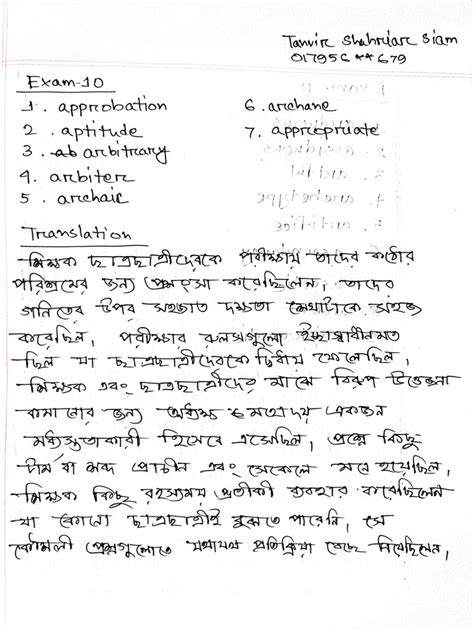 Tanvir Shahriar Siam
017956**679
Exam-10
1. approbation
2. aptitude
3. ab arbitrary
4. arbiter
5. archaic
6. archane
7. appropriate
Translation
শিক্ষক ছাত্রছাত্রীদেরকে পরীক্ষায় তাদের কঠোর
পরিশ্রমের জন্য প্রশংসা করেছিলেন, তাদের
গনিতের উপর সহজাত দক্ষতা শেখাটাকে সহজ
করেছিল, পরীক্ষার রুলসগুলো ইচ্ছাস্বাধীনমত
ছিল যা ছাত্রছাত্রীদেরকে দ্বিধায় ফেলেছিল,
শিক্ষক এবং ছাত্রছাত্রীদের মাঝে বিরূপ উত্তেজনা
কমানোর জন্য অধ্যক্ষ মহোদয় একজন
মধ্যস্থতাকারী হিসেবে এসেছিল, প্রশ্নে কিছু
টার্ম বা শব্দ প্রাচীন এবং সেকেলে মনে হয়েছিল,
শিক্ষক কিছু রহস্যময় প্রতীকী ব্যবহার করেছিলেন
যা কোনো ছাত্রছাত্রীই বুঝতে পারেনি, সে
কৌশলী প্রশ্নগুলোতে যথাযথ প্রতিক্রিয়া বেছে নিয়েছিলেন,